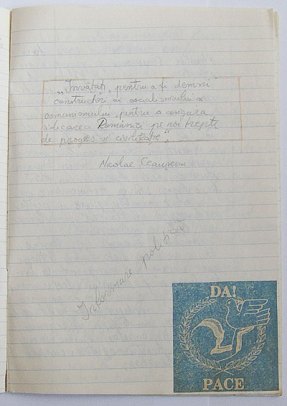 "Învățați, pentru a fi demni
constructori ai socialismului și
comunismului, pentru a asigura
ridicarea României pe noi trepte
de progres și civilizație",
Nicolae Ceaușescu
Informare politică
DA!
PACE